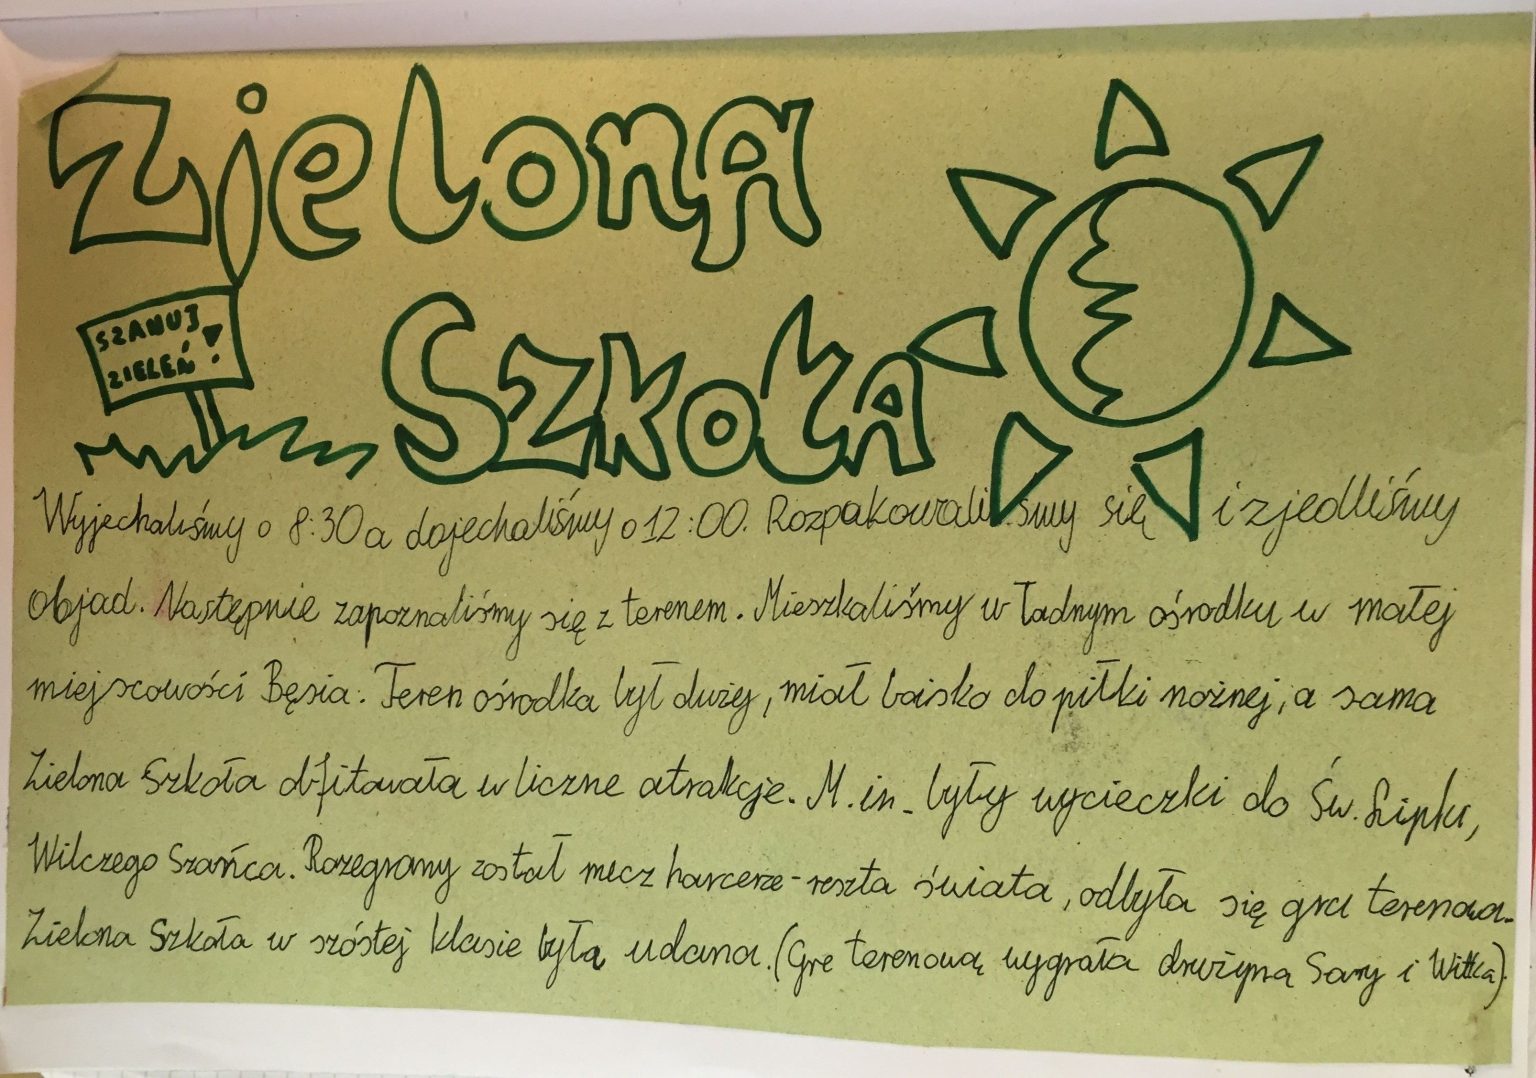 Zielona
SZANUJ
ZIELEŃ!
Szkoła
Wyjechaliśmy o 8:30 a dojechaliśmy o 12:00. Rozpakowaliśmy się i zjedliśmy
objad. Następnie zapoznaliśmy się z terenem. Mieszkaliśmy w ładnym ośrodku w małej
miejscowości Bęsia. Teren ośrodka był duży, miał boisko do piłki nożnej, a sama
Zielona Szkoła obfitowała w liczne atrakcje. M.in. były wycieczki do Św. Lipki,
Wilczego Szańca. Rozegrany został mecz harcerze-reszta świata, odbyła się gra terenowa.
Zielona Szkoła w szóstej klasie była udana. (Gre terenową wygrała drużyna Sary i Witka)